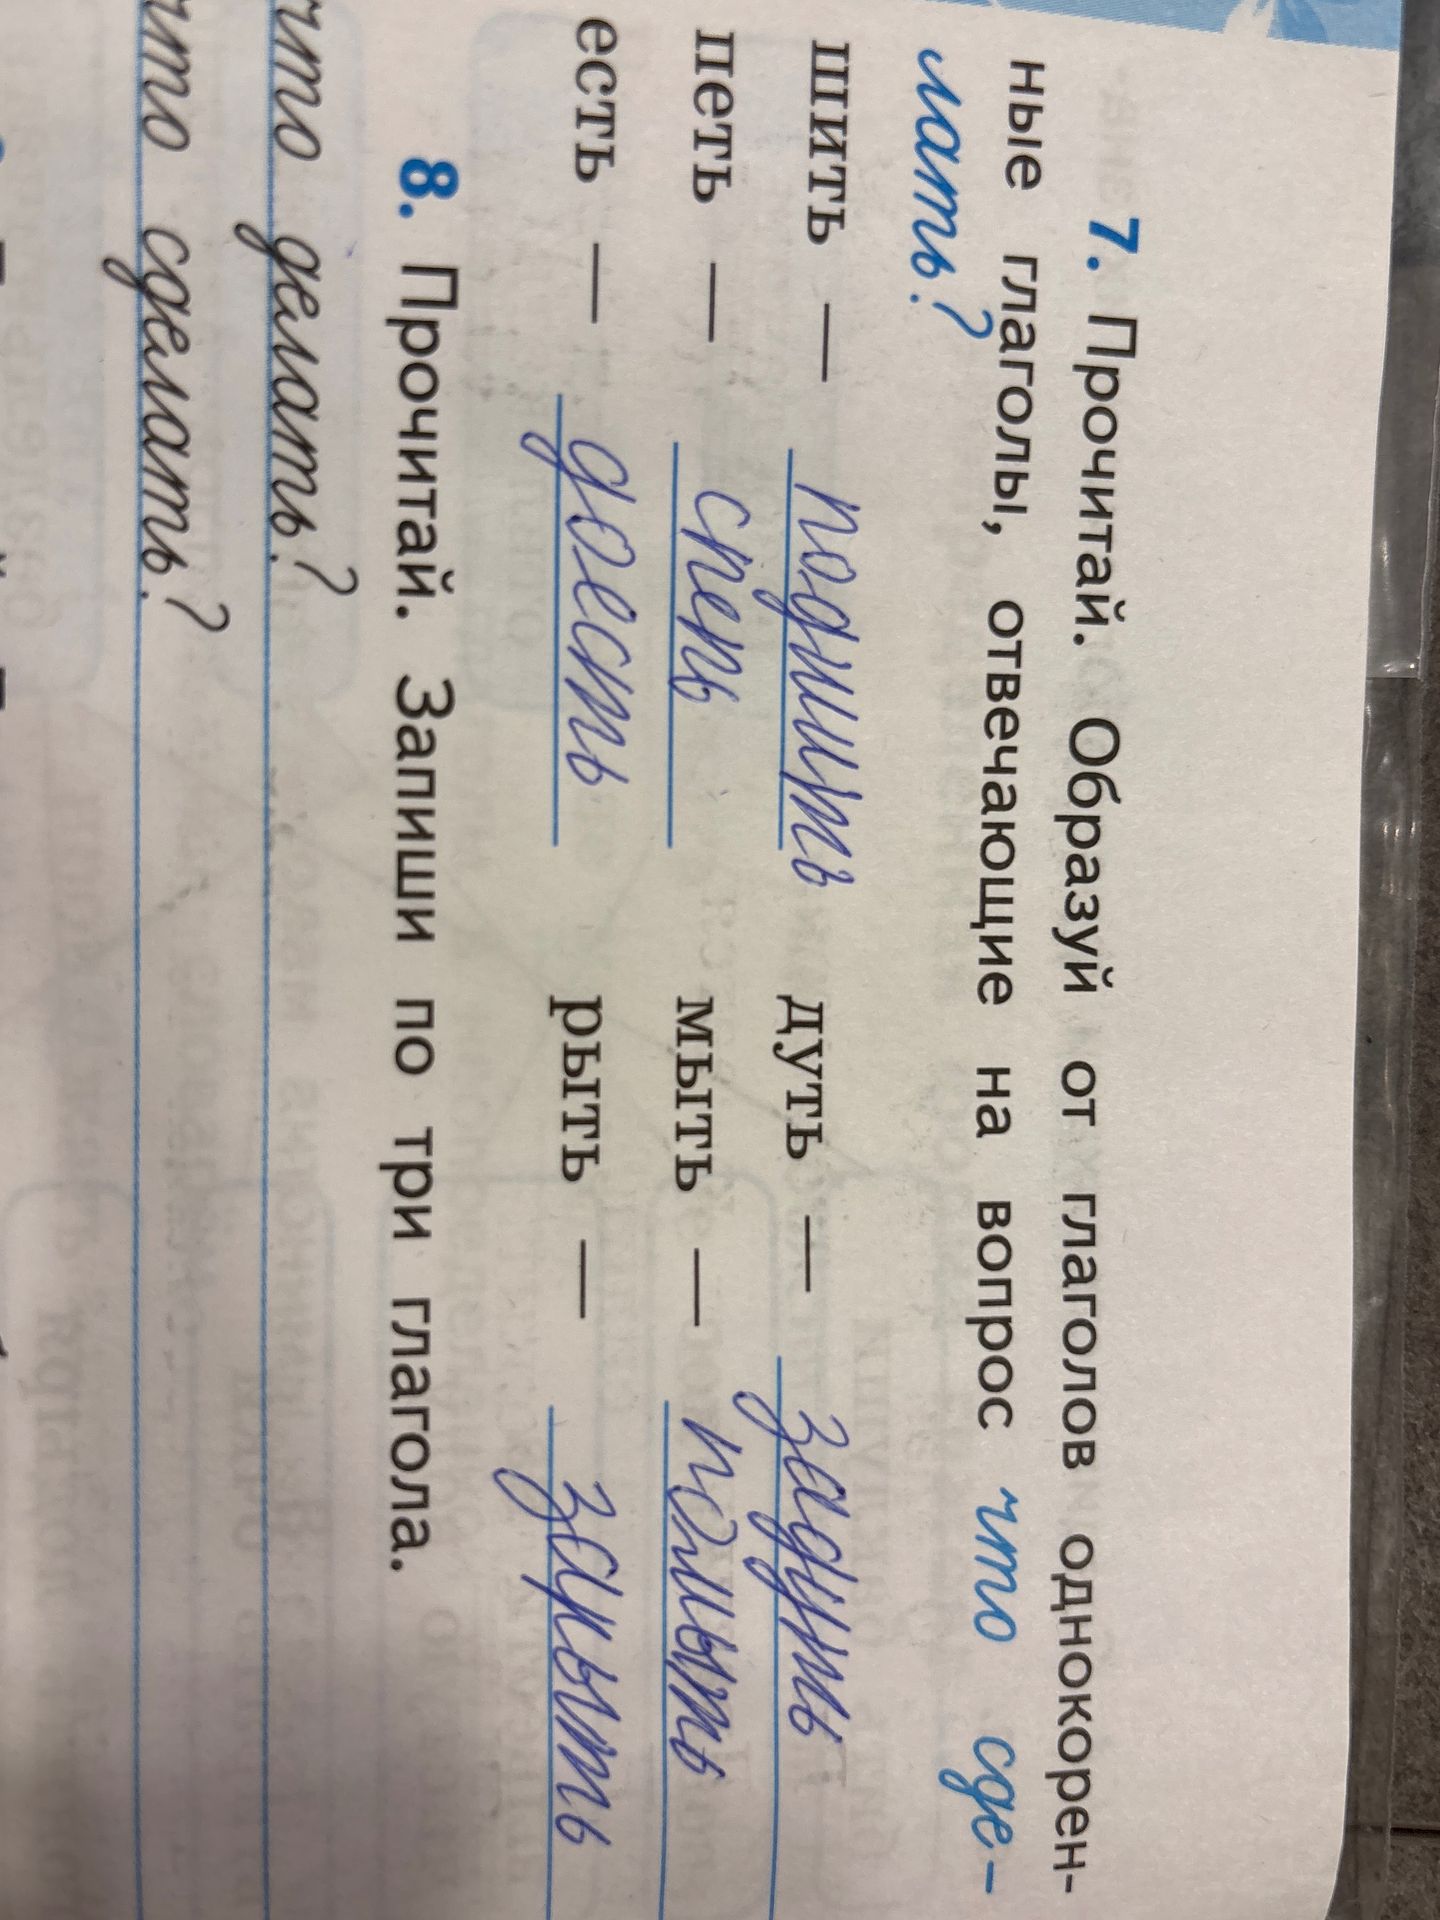 7. Прочитай. Образуй от глаголов однокорен-
ные глаголы, отвечающие на вопрос что сде-
лать?
шить — подшить дуть — задуть
петь — спеть мыть — помыть
есть — доесть рыть — зарыть
8. Прочитай. Запиши по три глагола.
что делать?
что сделать?